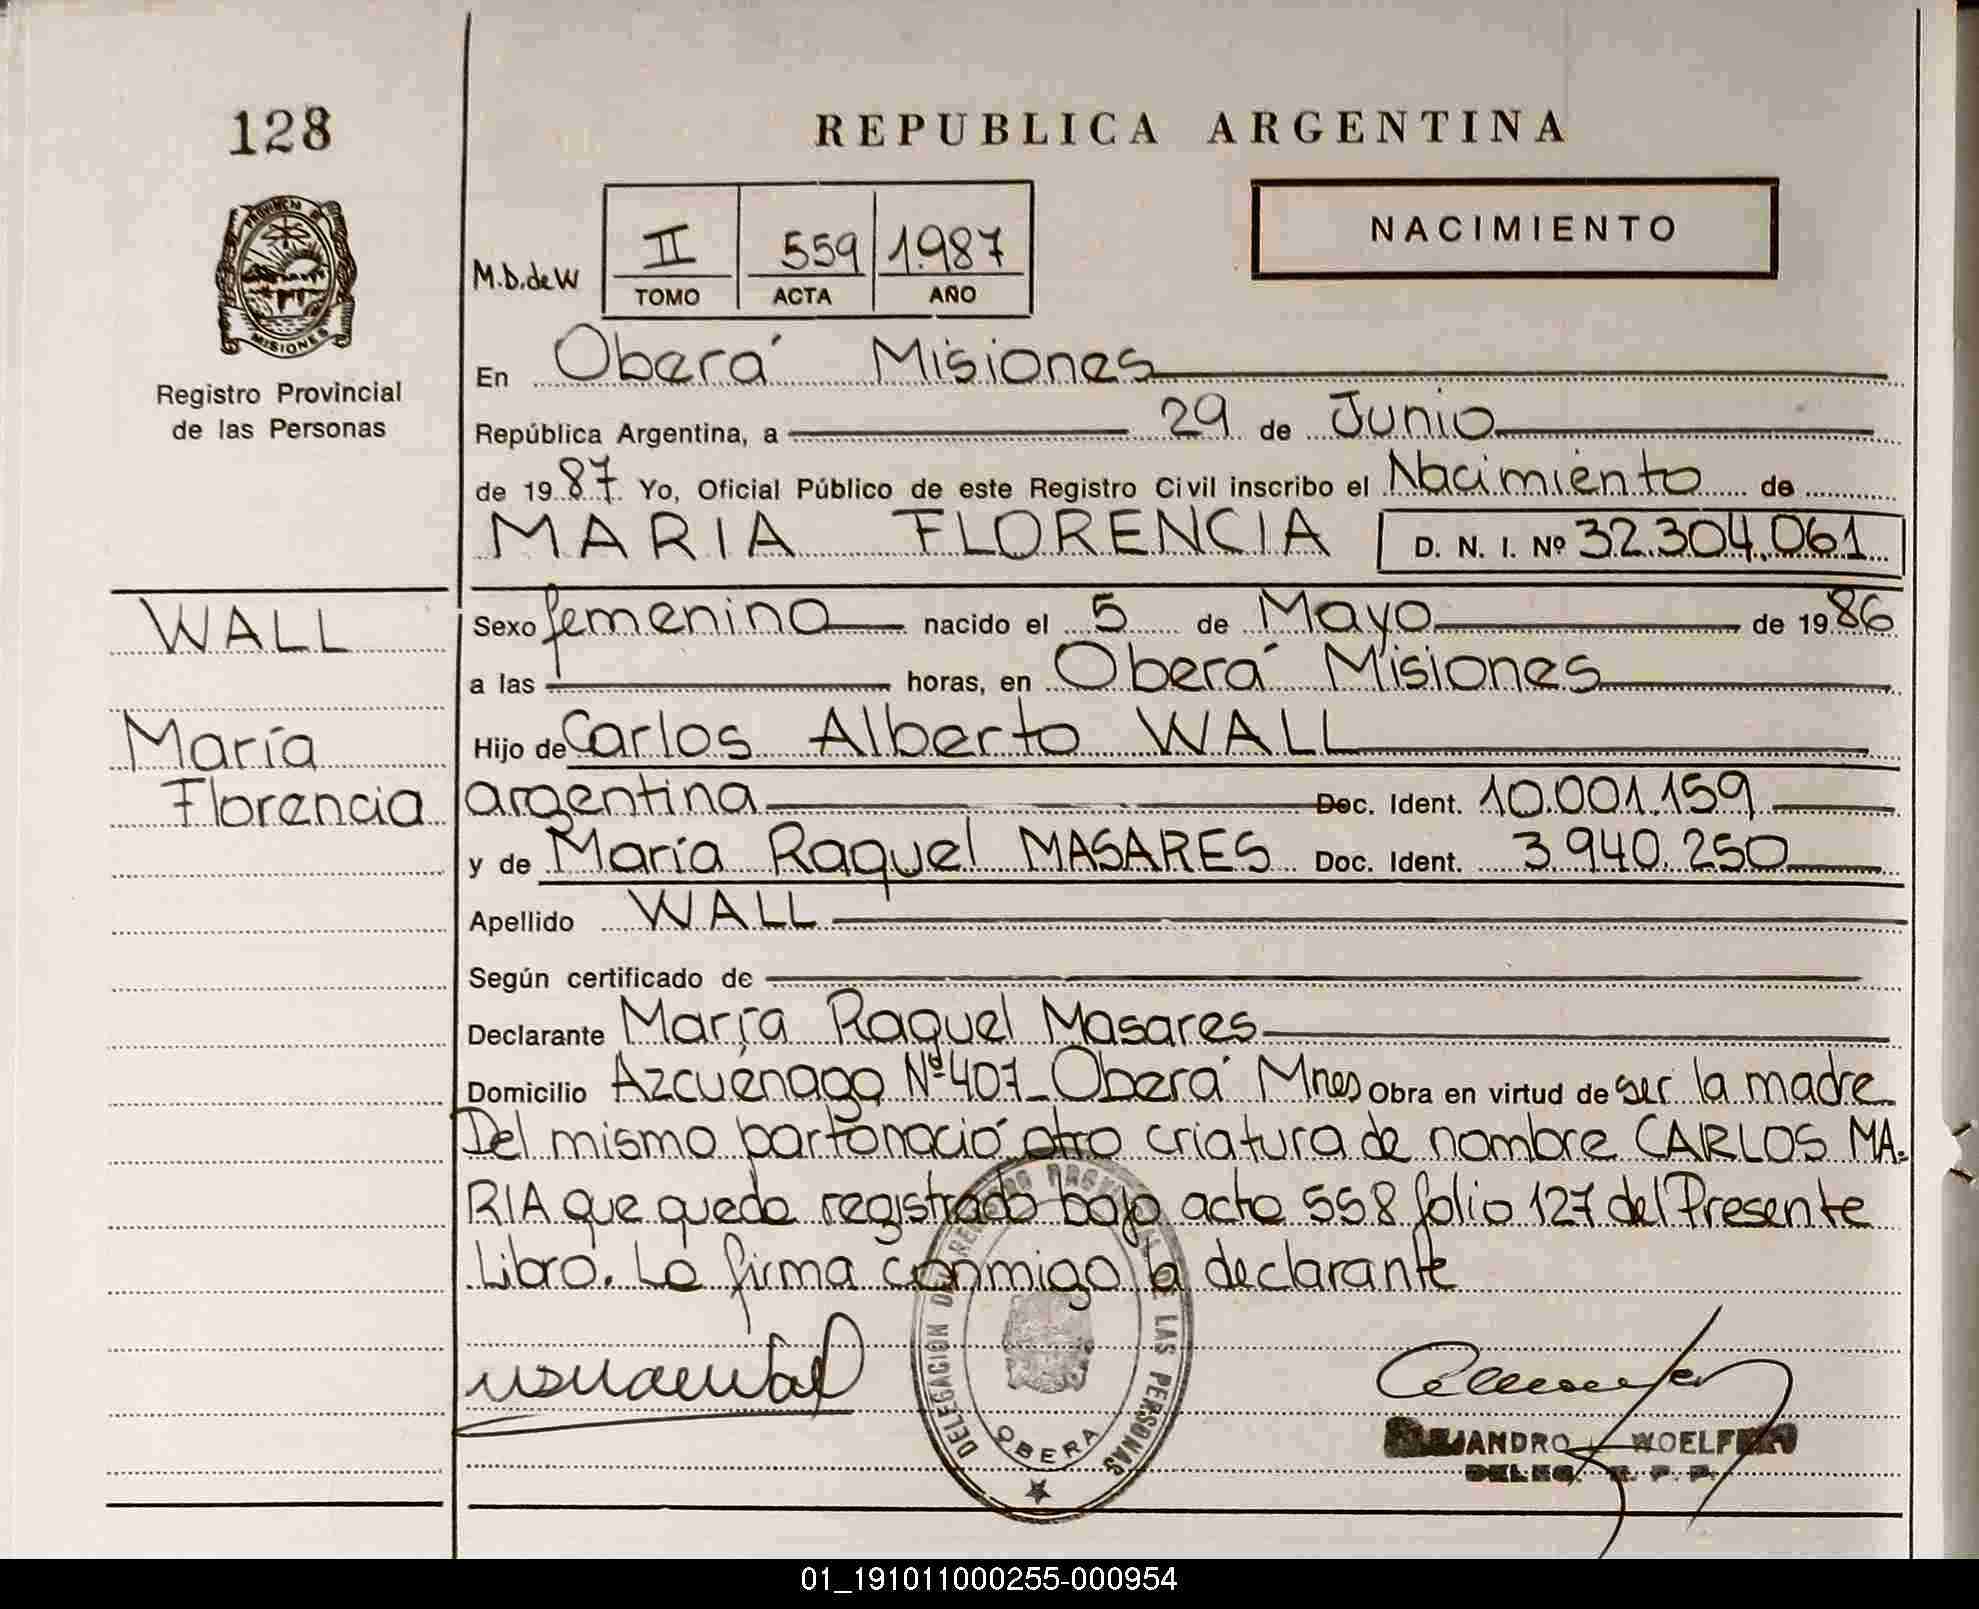 128
REPUBLICA ARGENTINA
PROVINCIA DE
MISIONES
Registro Provincial
de las Personas
NACIMIENTO
M.D.deW
II 559 1.987
TOMO ACTA AÑO
En Oberá Misiones
República Argentina, a 29 de Junio
de 19 87 Yo, Oficial Público de este Registro Civil inscribo el Nacimiento de
MARIA FLORENCIA D. N. I. Nº 32.304.061
WALL
María
Florencia
Sexo femenino nacido el 5 de Mayo de 19 86
a las horas, en Oberá Misiones
Hijo de Carlos Alberto WALL
argentina Doc. Ident. 10.001.159
y de María Raquel MASARES Doc. Ident. 3.940.250
Apellido WALL
Según certificado de
Declarante María Raquel Masares
Domicilio Azcuénaga Nº 407_ Oberá Mnes Obra en virtud de ser la madre
Del mismo parto nació otra criatura de nombre CARLOS MA-
RIA que queda registrado bajo acta 558 folio 127 del Presente
Libro. La firma conmigo la declarante
DELEGACION DE LAS PERSONAS
OBERA
ALEJANDRO WOELFERT
DELEG. R. P. P.
01_191011000255-000954